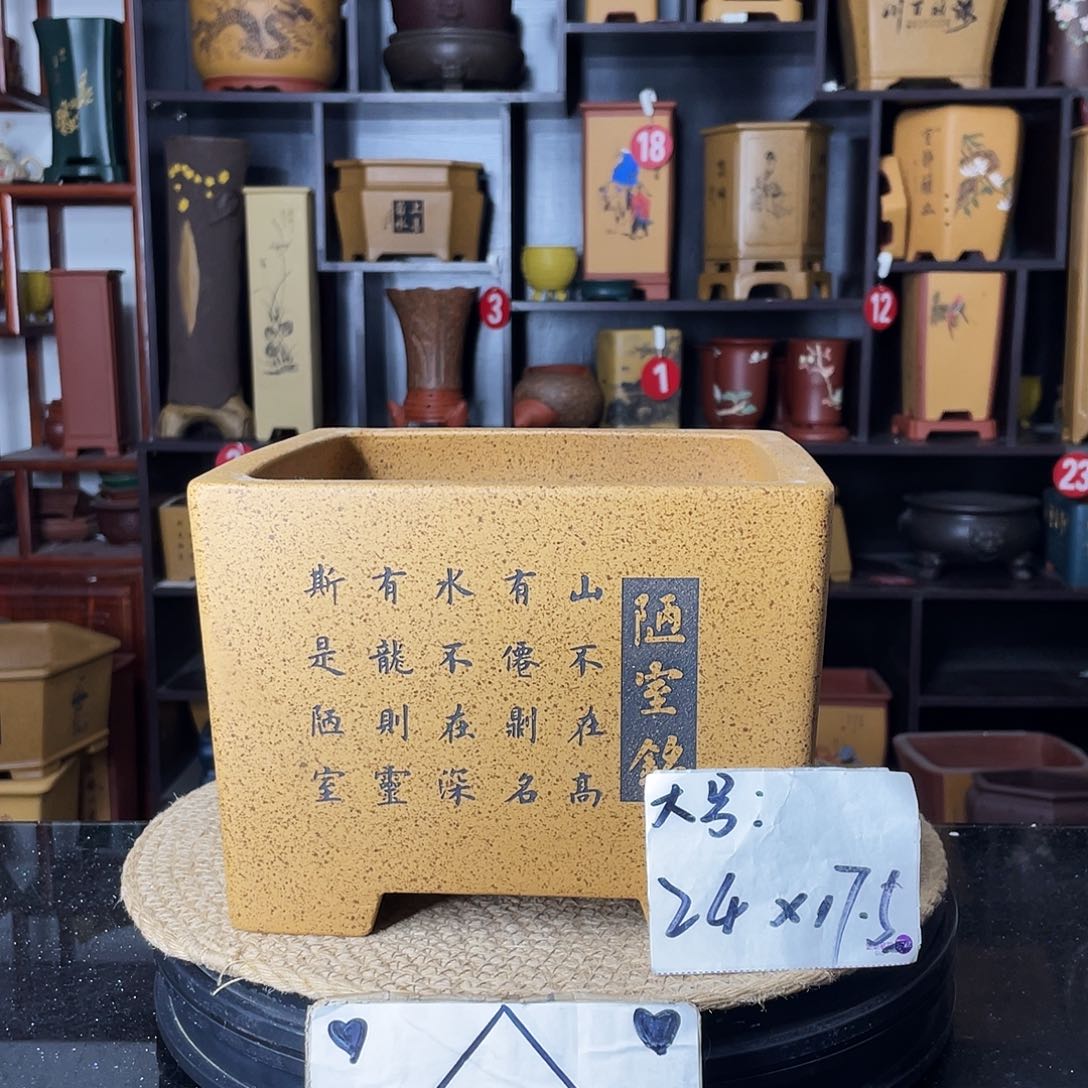 陋室銘
山不在高
有僊則名
水不在深
有龍則靈
斯是陋室
大号:
24×17.5
18
3
12
1
23